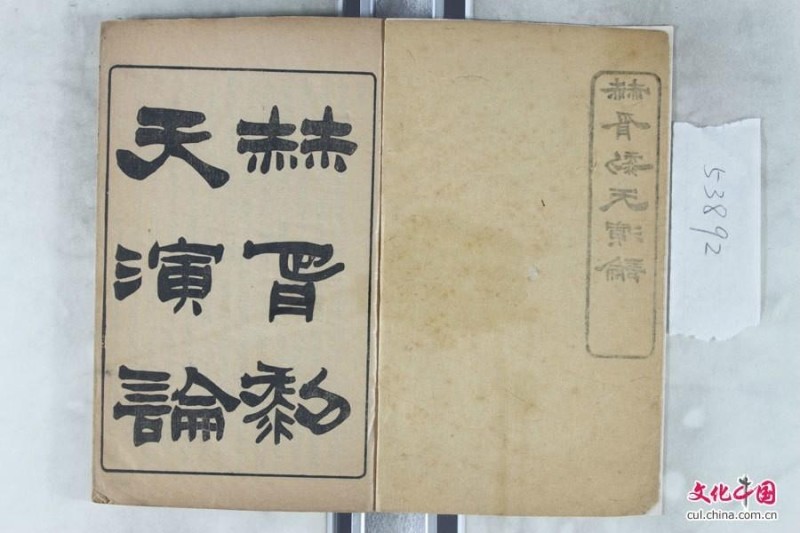 赫胥黎
天演論
赫胥黎天演論
53892
文化中国
cul.china.com.cn